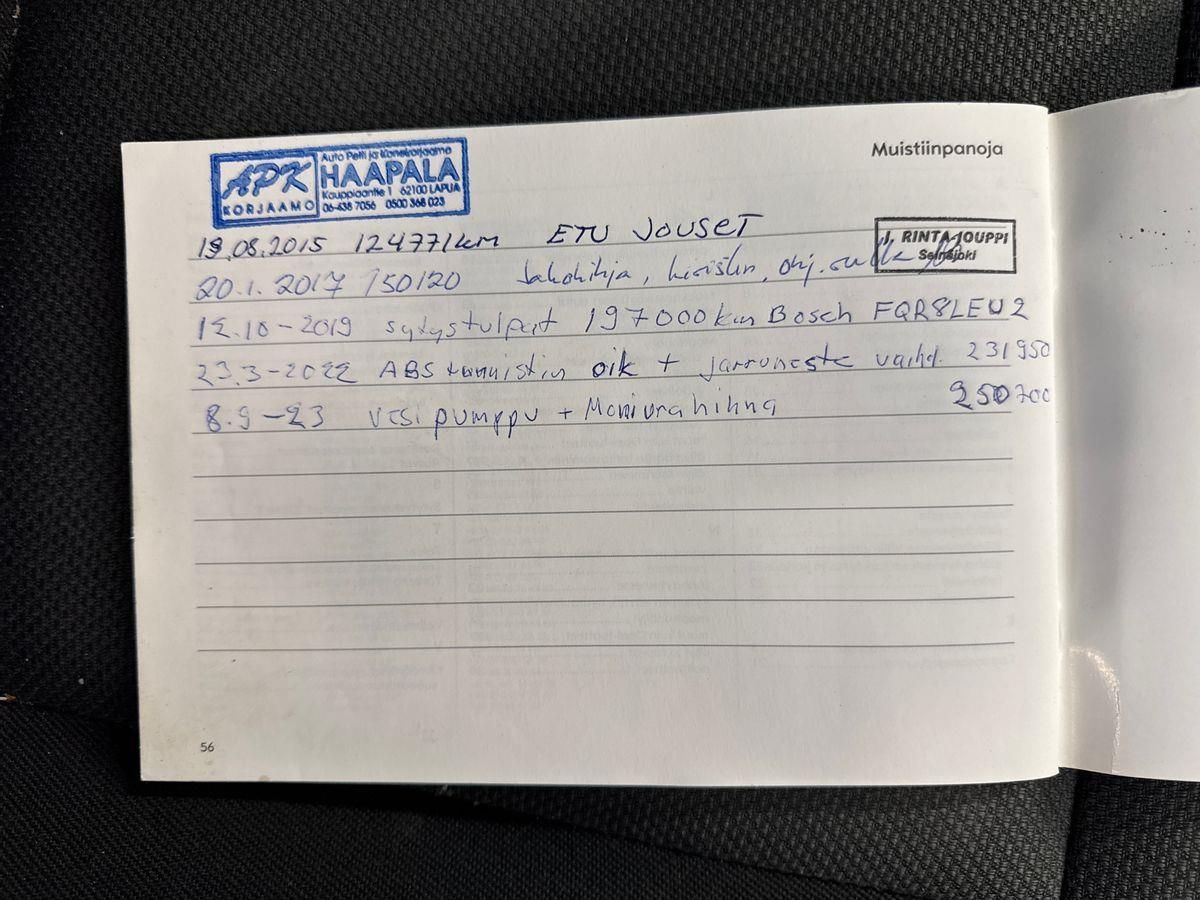 Muistiinpanoja
APK
KORJAAMO
Auto Pelti ja Konekorjaamo
HAAPALA
Kauppiaantie 1 62100 LAPUA
06-438 7056 0500 368 023
19.08.2015 124771km ETU JOUSET
J. RINTA-JOUPPI
Seinäjoki
20.1.2017 150120 Jakohihna, kiristin, ohj.rulla
12.10-2019 sytystulpat 197000km Bosch FQR8LEU2
23.3-2022 ABS tunnistin oik + jarruneste vaihd. 231950
8.9-23 vesipumppu + Moniurahihna 250700
56